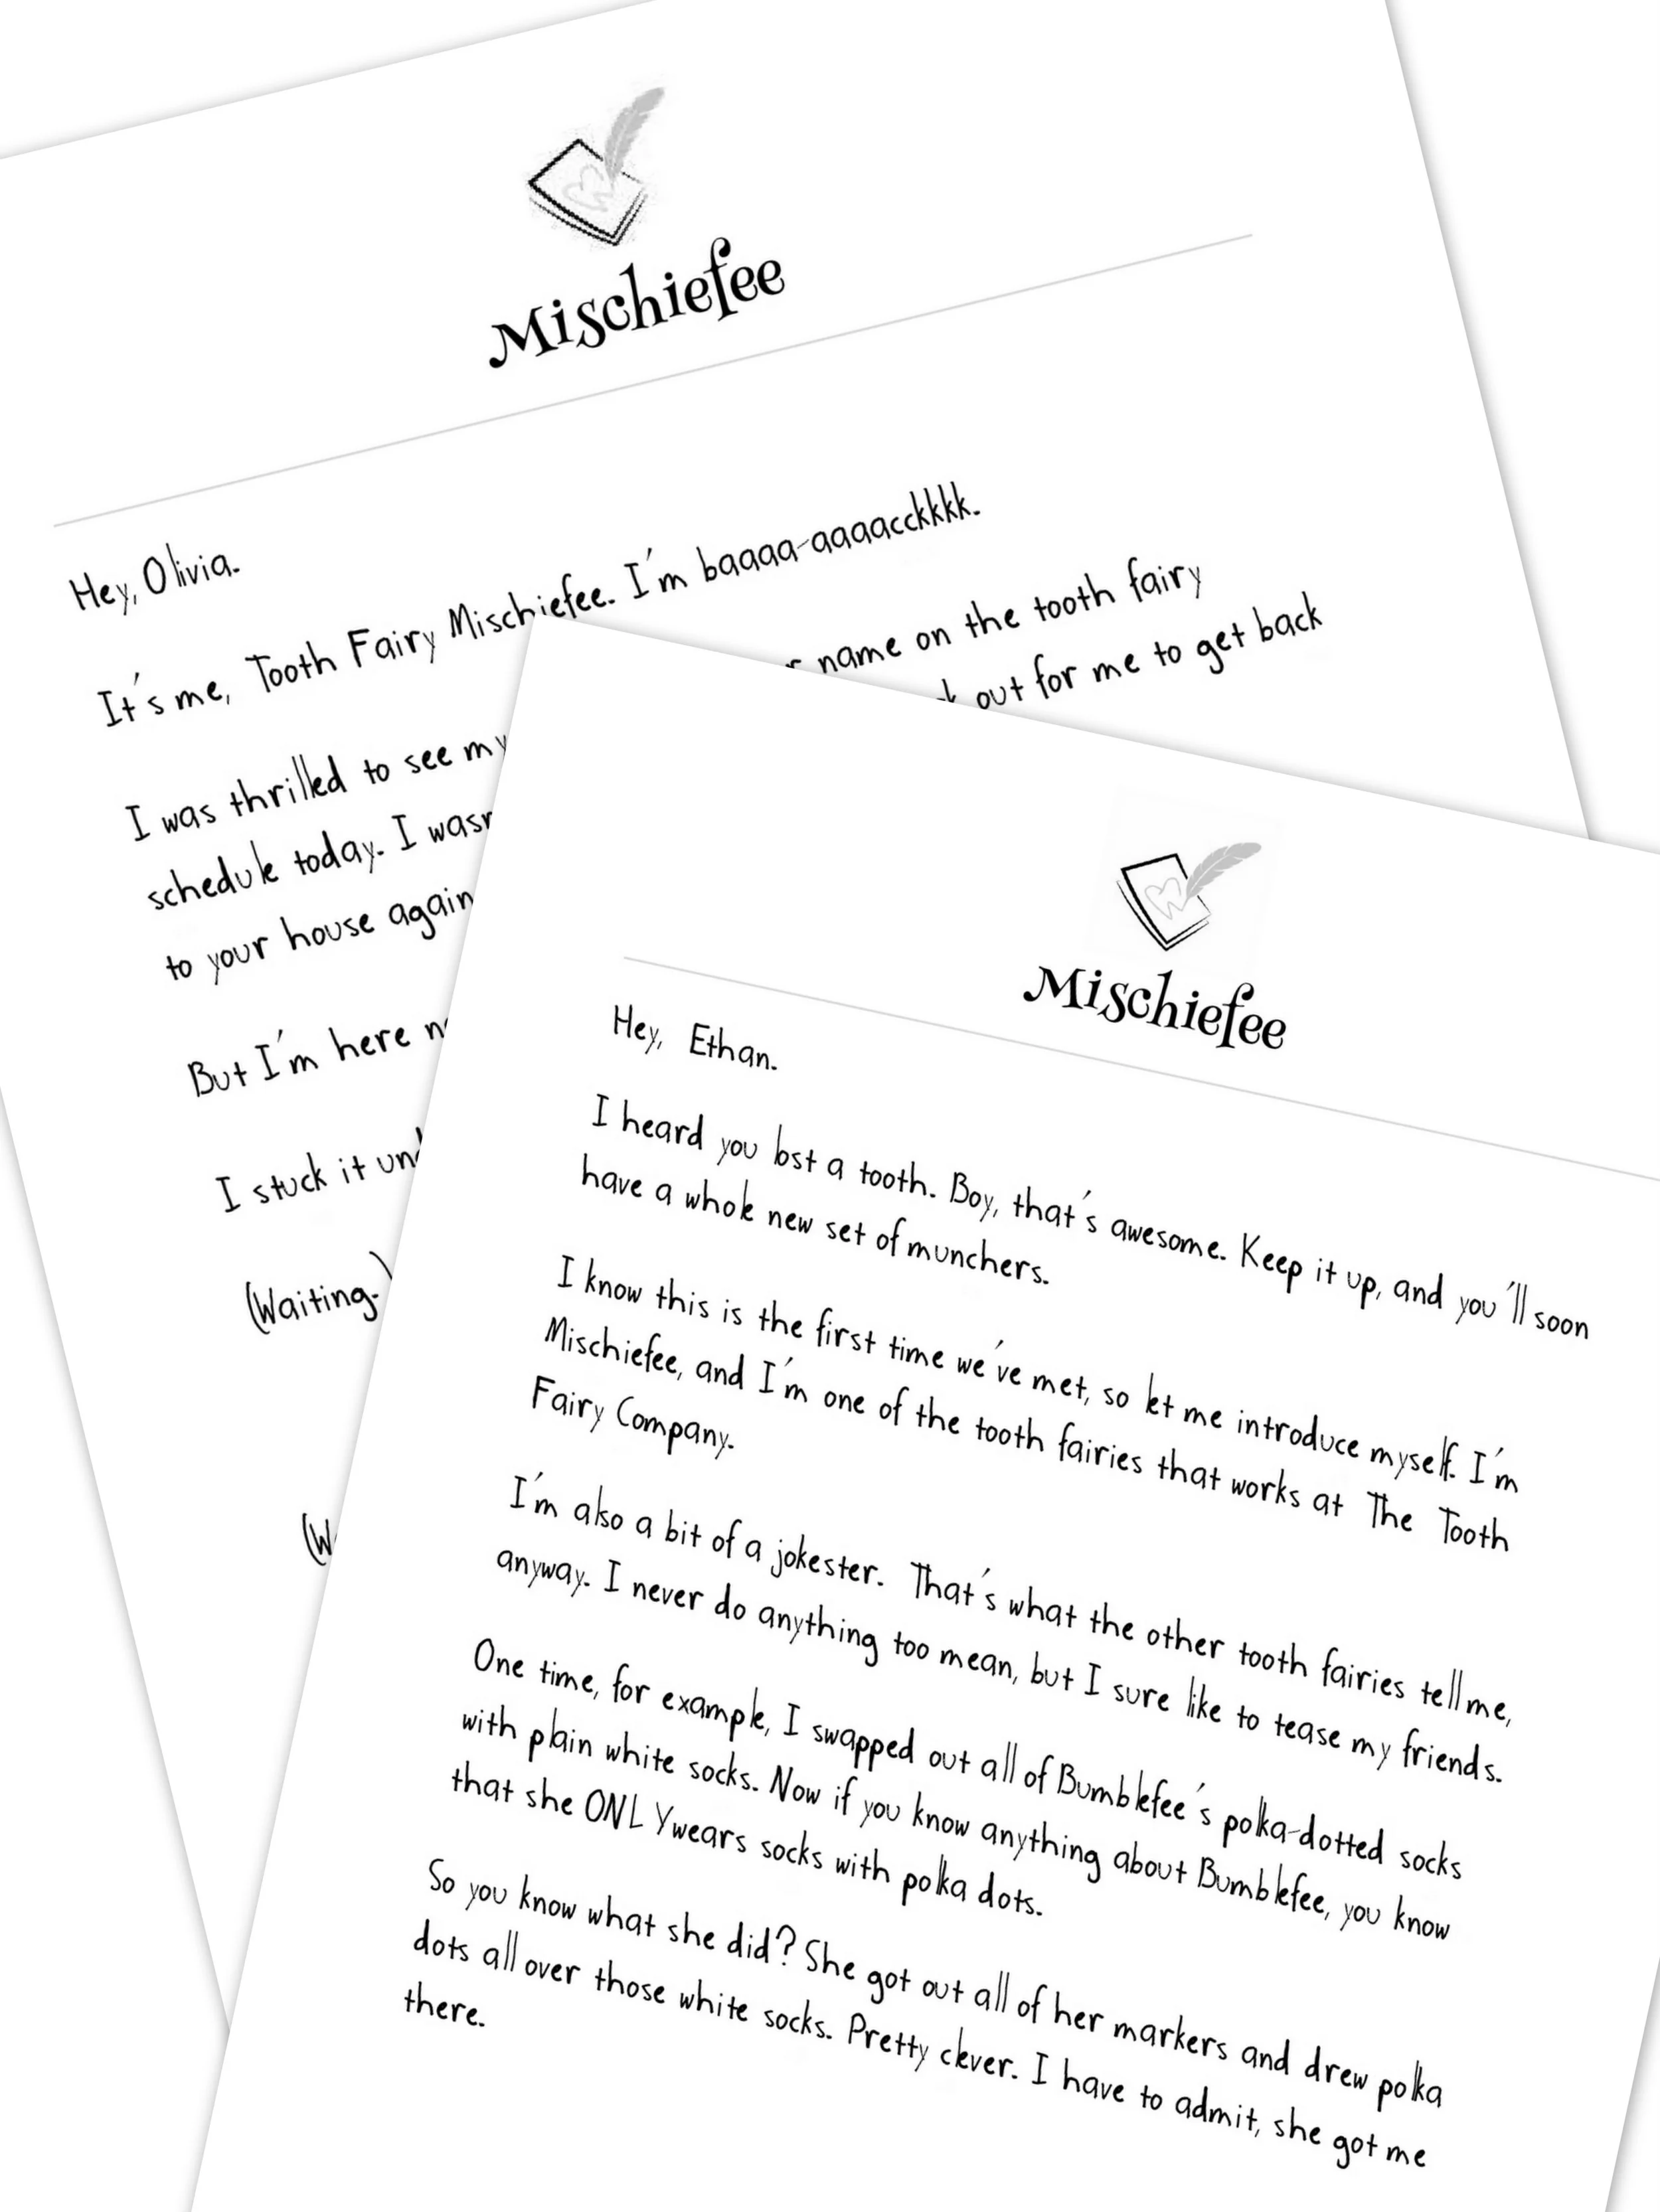 Mischiefee
Hey, Olivia.
It's me, Tooth Fairy Mischiefee. I'm baaaa-aaaacckkkk.
I was thrilled to see my name on the tooth fairy
schedule today. I out for me to get back
to your house again
But I'm here
I stuck it
(Waiting.)
Mischiefee
Hey, Ethan.
I heard you lost a tooth. Boy, that's awesome. Keep it up, and you'll soon
have a whole new set of munchers.
I know this is the first time we've met, so let me introduce myself. I'm
Mischiefee, and I'm one of the tooth fairies that works at The Tooth
Fairy Company.
I'm also a bit of a jokester. That's what the other tooth fairies tell me,
anyway. I never do anything too mean, but I sure like to tease my friends.
One time, for example, I swapped out all of Bumblefee's polka-dotted socks
with plain white socks. Now if you know anything about Bumblefee, you know
that she ONLY wears socks with polka dots.
So you know what she did? She got out all of her markers and drew polka
dots all over those white socks. Pretty clever. I have to admit, she got me
there.